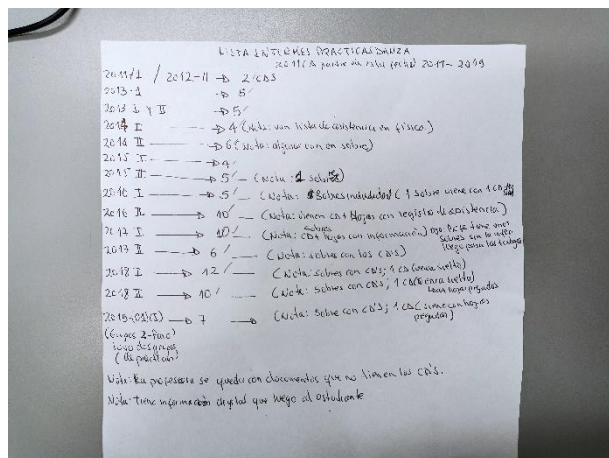 LISTA INFORMES PRACTICAS DANZA
2011/ A partir de esta fecha 2011-2019
2011/1 / 2012-II → 2 CDS
2013-1 → 5
2013 I y II → 5
2014 I → 4 (Nota: van lista de asistencia en físico.)
2014 II → 6 (Nota: algunos con en sobre)
2015 I → 4
2015 II → 5 (Nota: 1 sobre)
2016 I → 5 (Nota: Sobres (1 sobre viene con 1 CD
2016 II → 10 (Nota: vienen CD + Hojas con registro de asistencia)
2017 I → 10 (Nota: sobres CD + hojas con información)
2017 II → 6 (Nota: sobres con los CD's)
2018 I → 12 (Nota: sobres con CD's; 1 CD (venia suelto)
2018 II → 10 (Nota: sobres con CD's; 1 CD (venia suelto)
hojas pegadas
2019-01(I) → 7 → (Nota: Sobre con CD'S; 1 CD (viene con hojas
pegadas)
(Grupos 2-
Nota: La profesora se queda con documentos que no tienen los CD's.
Nota: Tiene información digital que llego al estudiante